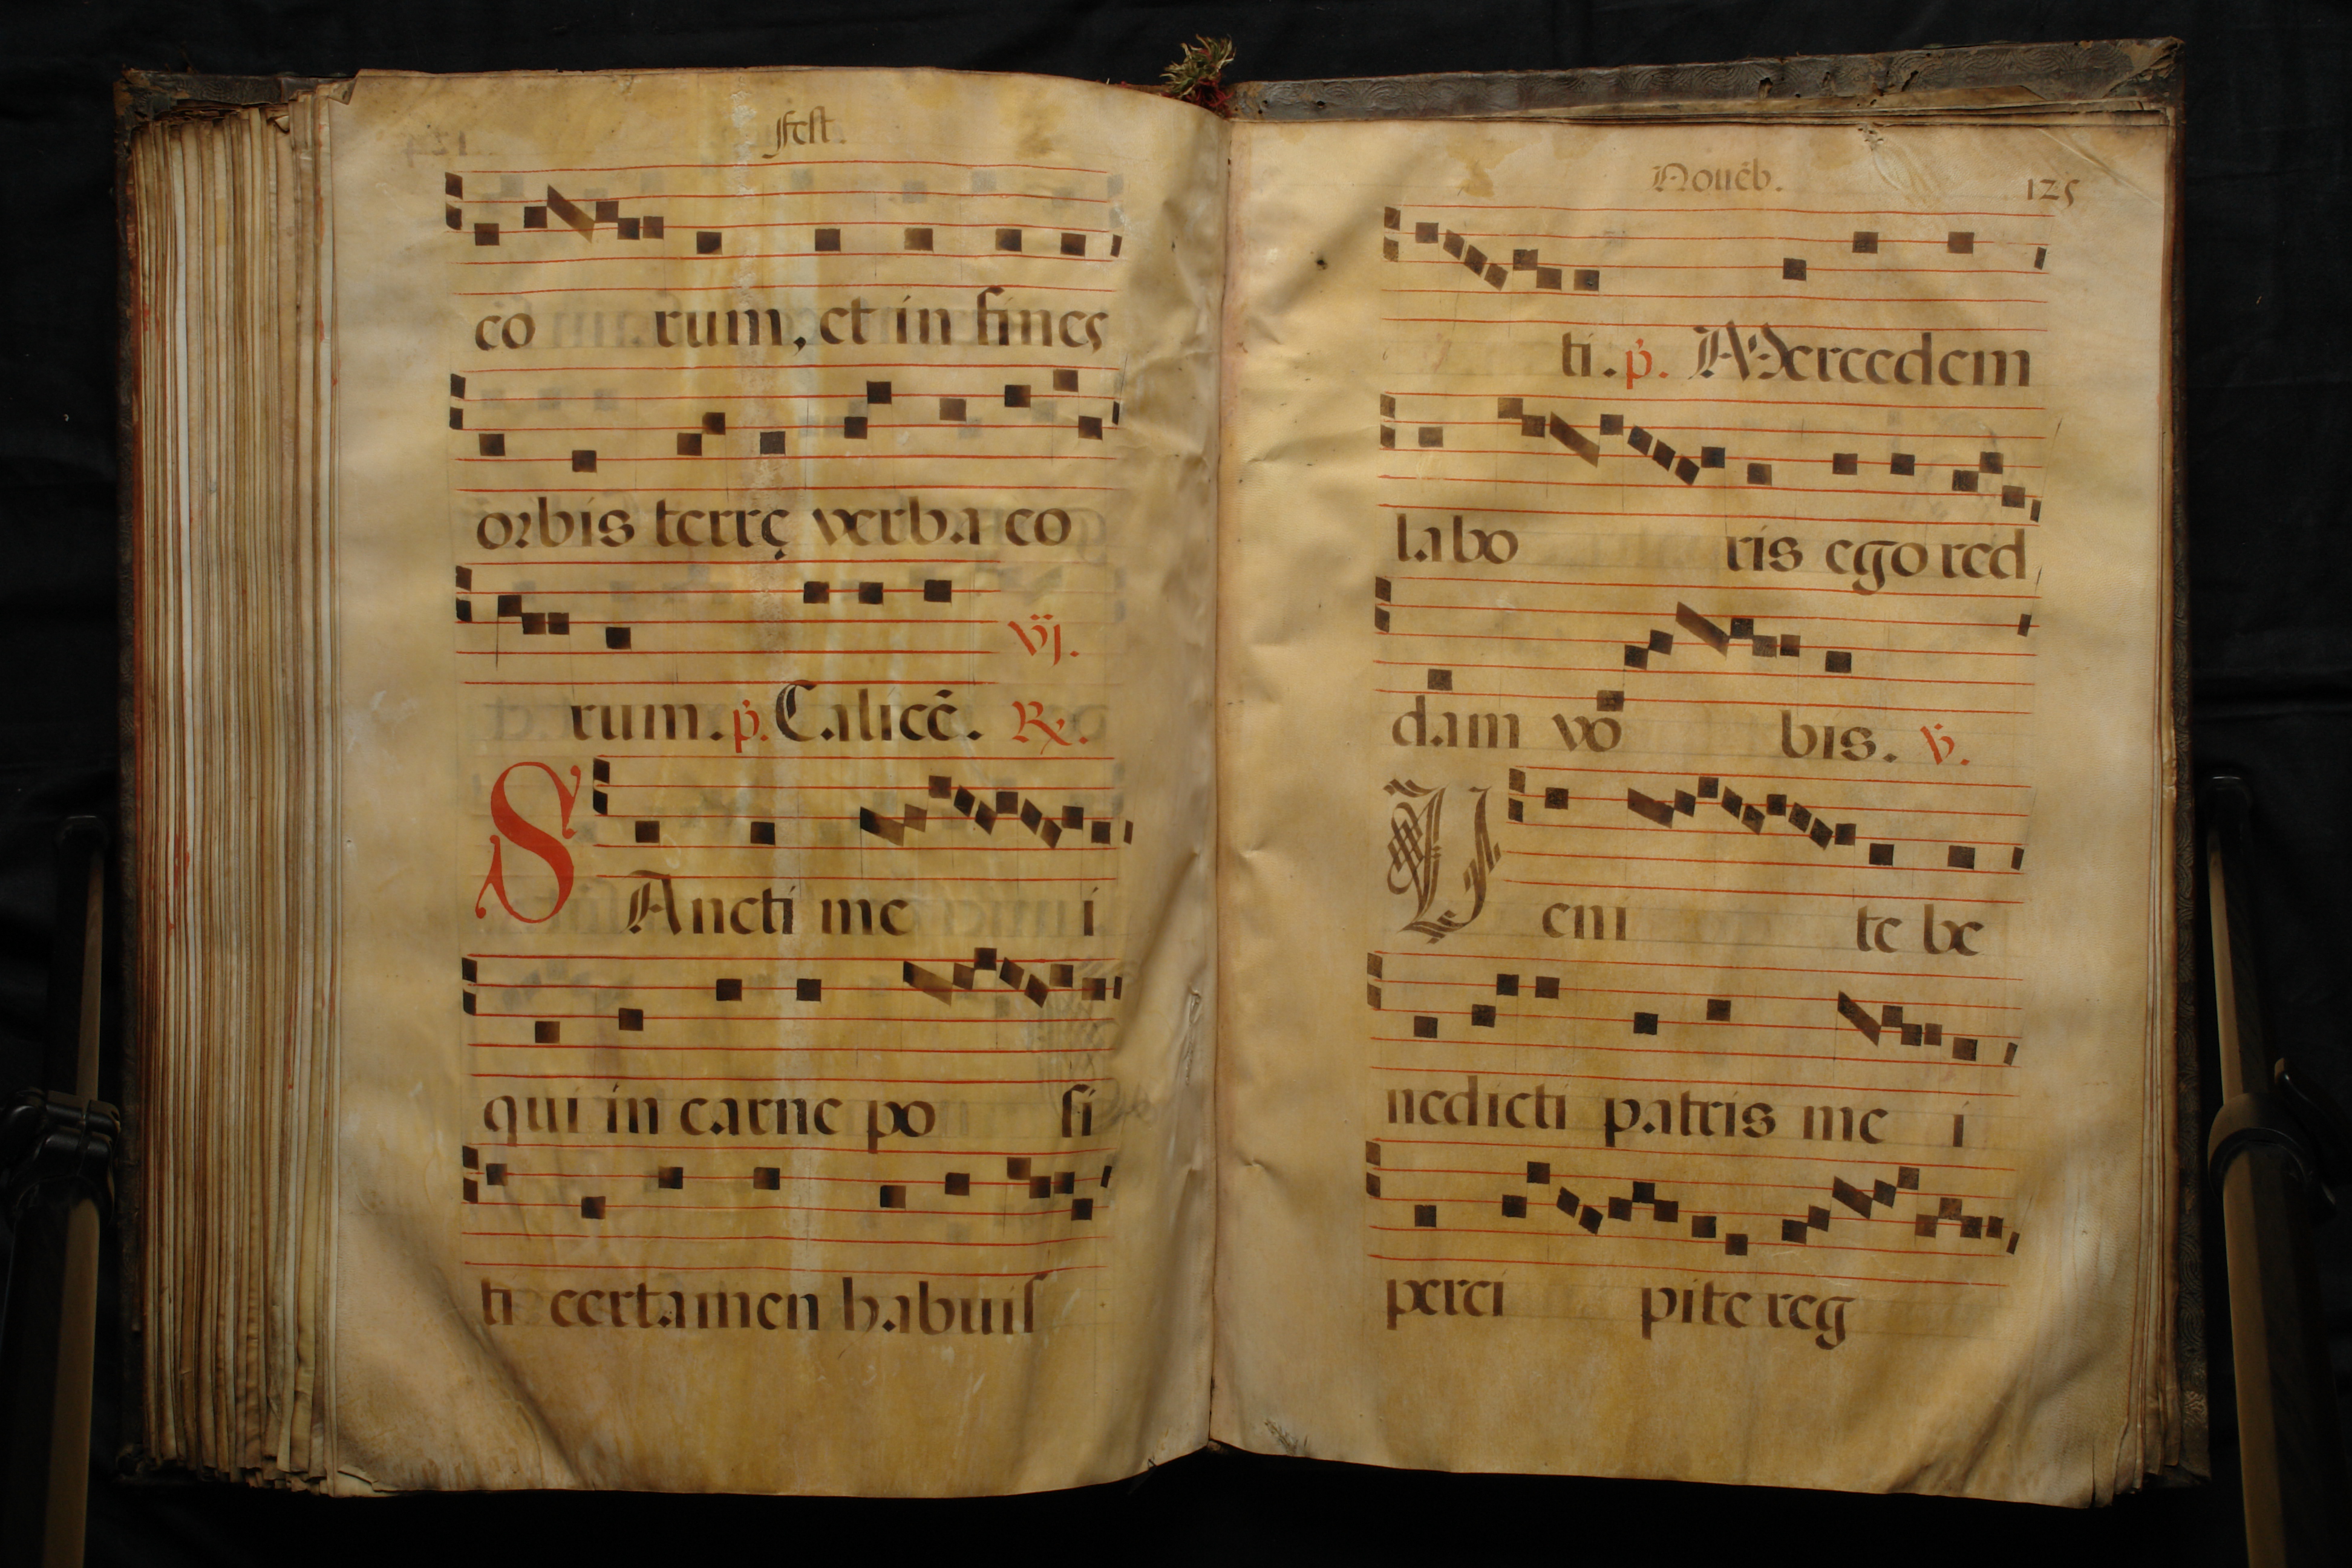 fest.
eo rum, et in fines
orbis terrę verba eo
vj.
rum. p. Calicē. R.
SAncti me i
qui in carne po si
ti certamen habuis
Nouēb. 125
ti. p. Mercedem
labo ris ego red
dam vo bis. v.
Veni te be
nedicti patris me i
perci pite reg